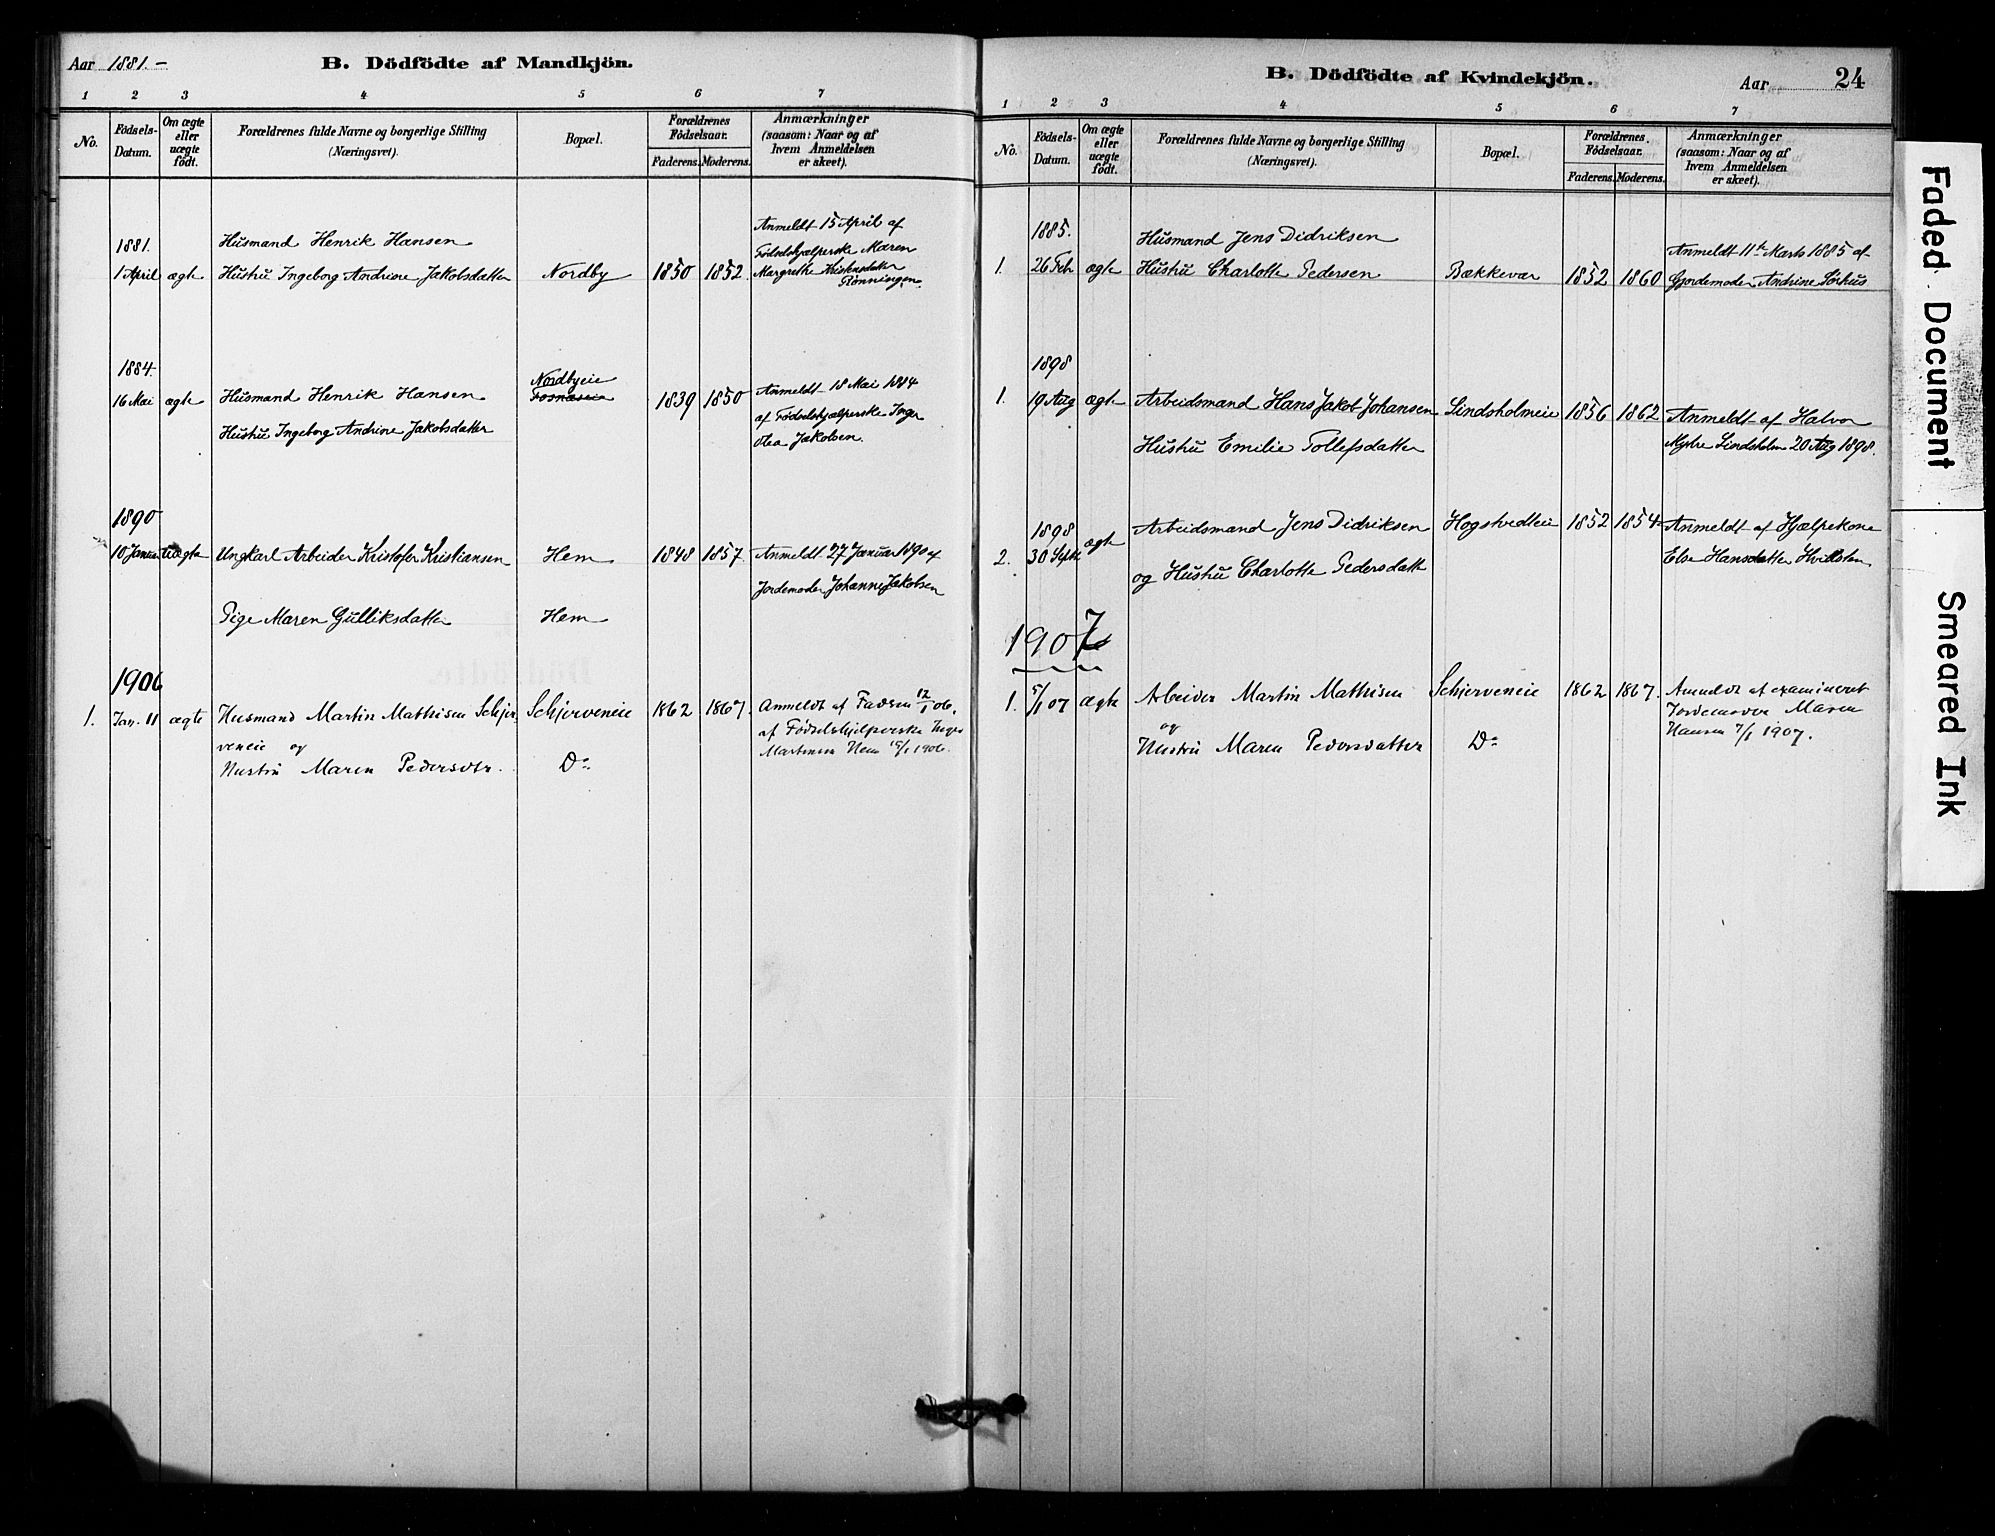 Aar 1881.-
B. Dödfödte af Mandkjön.
1 2 3 4 5 6 7
No.
Födsels-
Datum.
Om ægte
eller
uægte
födt.
Forældrenes fulde Navne og borgerlige Stilling
(Næringsvei).
Bopæl.
Forældrenes
Födselsaar.
Faderens. Moderens.
Anmærkninger
(saasom: Naar og af
hvem Anmeldelsen
er skeet).
1881.
1 April ægte
Husmand Henrik Hansen
Hustru Ingeborg Andrine Jakobsdatter
Nordby
1850 1852.
Anmeldt 15 April af
Fødselshjælperske Maren
Margrethe Kristensdatter
Rønningen.
1884.
16 Mai ægte
Husmand Henrik Hansen
Hustru Ingeborg Andrine Jakobsdatter
Nordbyeie
1839 1850
Anmeldt 18 Mai 1884
af Fødselshjælperske Inger
Olea Jakobsen.
1890
10 Januar uægte
Ungkarl Arbeider Kristofer Kristiansen
Pige Maren Gulliksdatter
Hem
Hem
1848 1857.
Anmeldt 27 Januar 1890 af
Jordemoder Johanne Jakobsen
1906
1. Jan. 11 ægte
Husmand Martin Mathisen Schjer-
veneie og
Hustru Maren Pedersdtr.
Schjerveneie
Do
1862 1867.
Anmeldt af Faderen 12/1 06.
af Fødselshjelperske Inger
Martinsen Hem 15/1 1906.
B. Dödfödte af Kvindekjön.
Aar
24
1 2 3 4 5 6 7
No.
Födsels-
Datum.
Om ægte
eller
uægte
födt.
Forældrenes fulde Navne og borgerlige Stilling
(Næringsvei).
Bopæl.
Forældrenes
Födselsaar.
Faderens. Moderens.
Anmærkninger
(saasom: Naar og af
hvem Anmeldelsen
er skeet).
1885.
1. 26 Feb. ægte
Husmand Jens Didriksen
Hustru Charlotte Pedersen
Bækkevar
1852 1860
Anmeldt 11te Marts 1885 af
Gjordemoder Andrine Sørhus
1898
1. 19 Aug ægte
Arbeidsmand Hans Jakob Johansen
Hustru Emilie Tollefsdatter
Lindsholmeie
1856 1862
Anmeldt af Halvor
Myhre Lindsholm 20 Aug 1898.
1898
2. 30 Septe ægte
Arbeidsmand Jens Didriksen
og Hustru Charlotte Pedersdatt
Hogstvedteie
1852 1854
Anmeldt af Hjælpekone
Else Hansdatter Hvidsten
1907
1. 5/1 07 ægte
Arbeider Martin Mathisen
og
Hustru Maren Pedersdatter
Schjerveneie
Do
1862 1867.
Anmeldt af examineret
Jordemoder Maren
Hansen 7/1 1907.
Faded Document
Smeared Ink